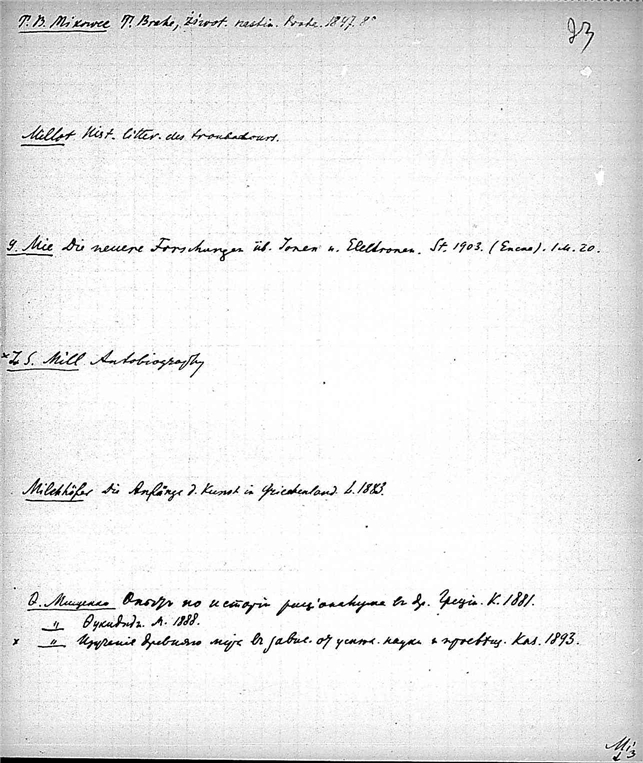 T. B. Mikowec T. Brahe, život. nastin. Praha. 1847. 8°
23
Millot Hist. litter. des troubadours.
G. Mie Die neuere Forschungen üb. Ionen u. Elektronen. St. 1903. (Encae). 1 M. 20.
× J. S. Mill Autobiography
Milchhöfer Die Anfänge d. Kunst in Griechenland. L. 1883.
Ѳ. Мищенко Опытъ по исторіи раціонализма въ др. Греціи. К. 1881.
" Ѳукидидъ. М. 1888.
× " Изученіе древняго міра въ завис. от успѣх. науки и просвѣщ. Каз. 1893.
Mi
3